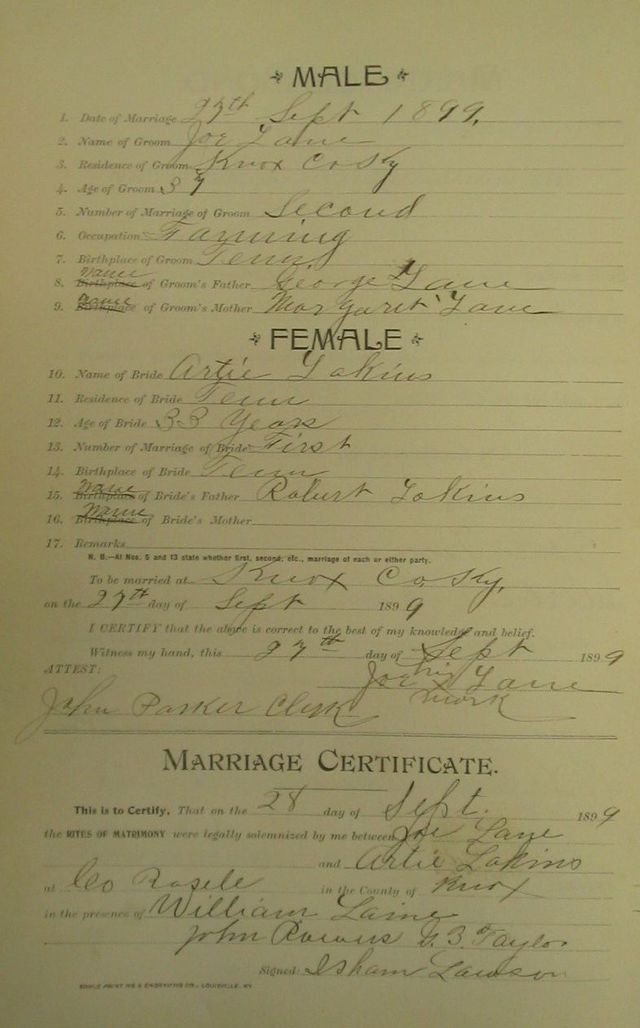 MALE
1. Date of Marriage 27th Sept 1899.
2. Name of Groom Joe Lane
3. Residence of Groom Knox Co Ky
4. Age of Groom 37
5. Number of Marriage of Groom Second
6. Occupation Farming
7. Birthplace of Groom Tenn
8. Birthplace Name of Groom's Father George Lane
9. Birthplace Name of Groom's Mother Margaret Lane
FEMALE
10. Name of Bride Artie Lakins
11. Residence of Bride Tenn
12. Age of Bride 33 Years
13. Number of Marriage of Bride First
14. Birthplace of Bride Tenn
15. Birthplace Name of Bride's Father Robert Lakins
16. Birthplace Name of Bride's Mother
17. Remarks
N. B.—At Nos. 5 and 13 state whether first, second, etc., marriage of each or either party.
To be married at Knox Co Ky.
on the 27th day of Sept 1899
I CERTIFY that the above is correct to the best of my knowledge and belief.
Witness my hand, this 27th day of Sept 1899
ATTEST: Joe his Lane
John Parker Clerk mark
MARRIAGE CERTIFICATE.
This is to Certify, That on the 28 day of Sept. 1899
the RITES OF MATRIMONY were legally solemnized by me between Joe Lane
and Artie Lakins
at Geo in the County of Knox
in the presence of William Laine
John G. B. Taylor
Signed: Isham Lawson
PRINTING & ENGRAVING CO., LOUISVILLE, KY.